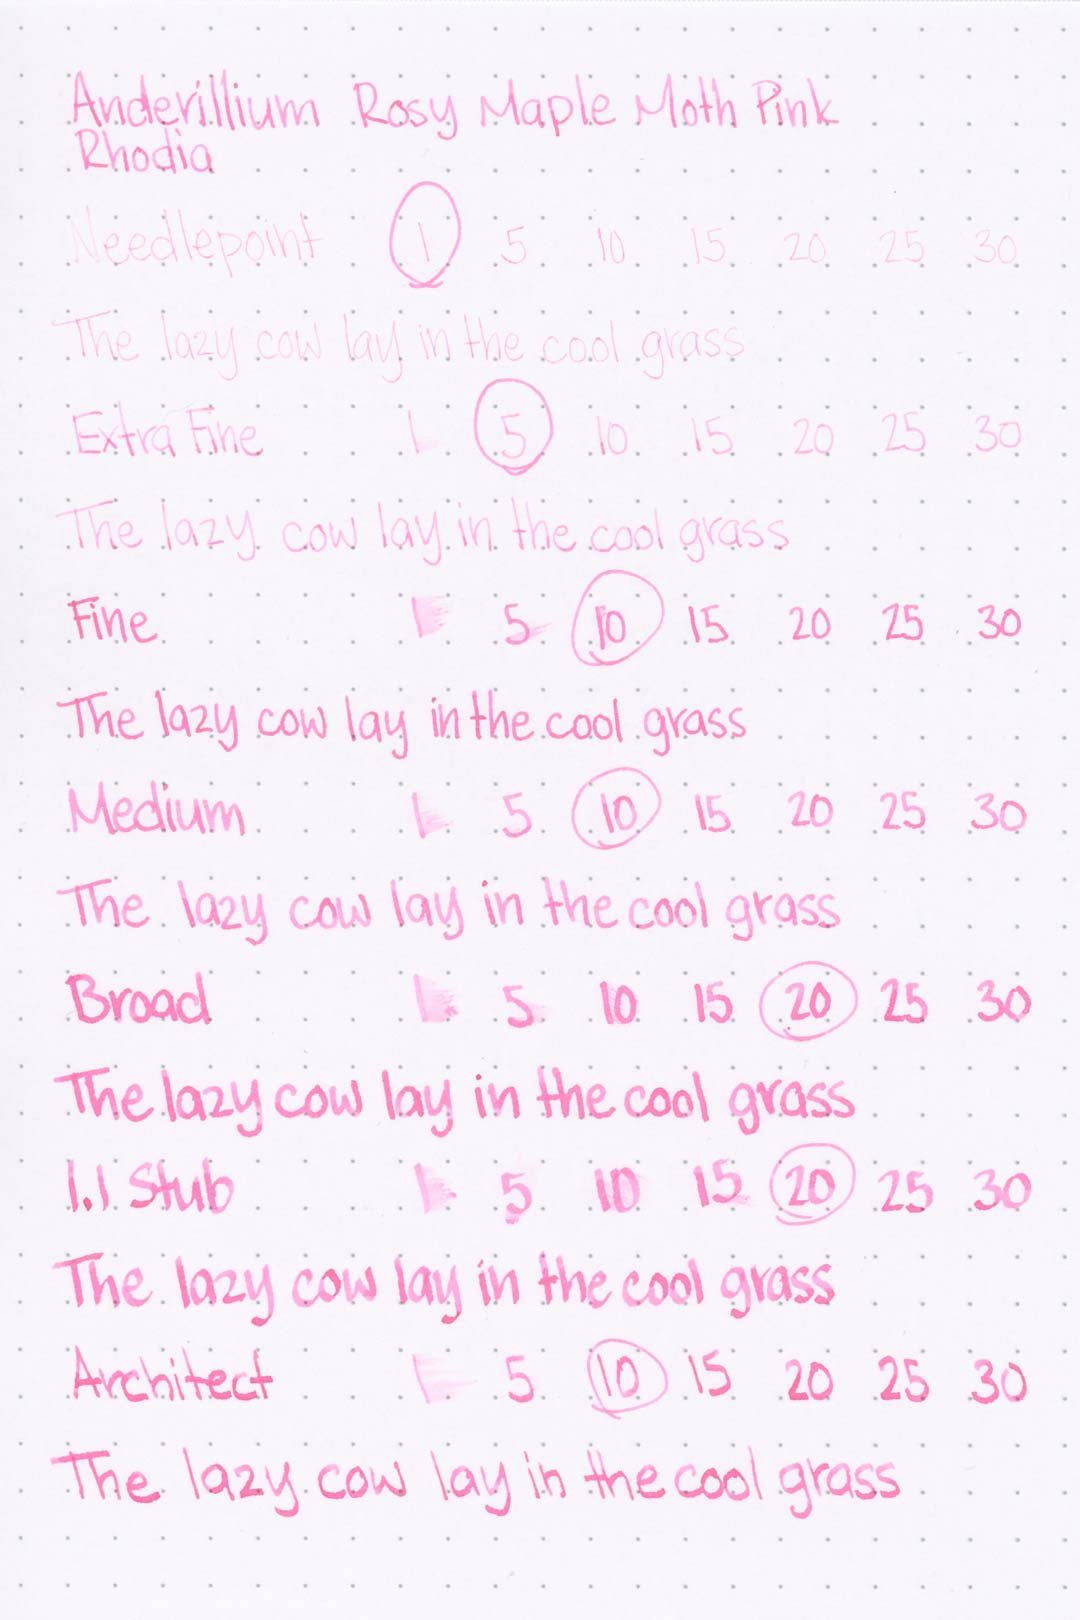 Anderillium Rosy Maple Moth Pink
Rhodia
Needlepoint 1 5 10 15 20 25 30
The lazy cow lay in the cool grass
Extra Fine 1 5 10 15 20 25 30
The lazy cow lay in the cool grass
Fine 1 5 10 15 20 25 30
The lazy cow lay in the cool grass
Medium 1 5 10 15 20 25 30
The lazy cow lay in the cool grass
Broad 1 5 10 15 20 25 30
The lazy cow lay in the cool grass
1.1 Stub 1 5 10 15 20 25 30
The lazy cow lay in the cool grass
Architect 1 5 10 15 20 25 30
The lazy cow lay in the cool grass